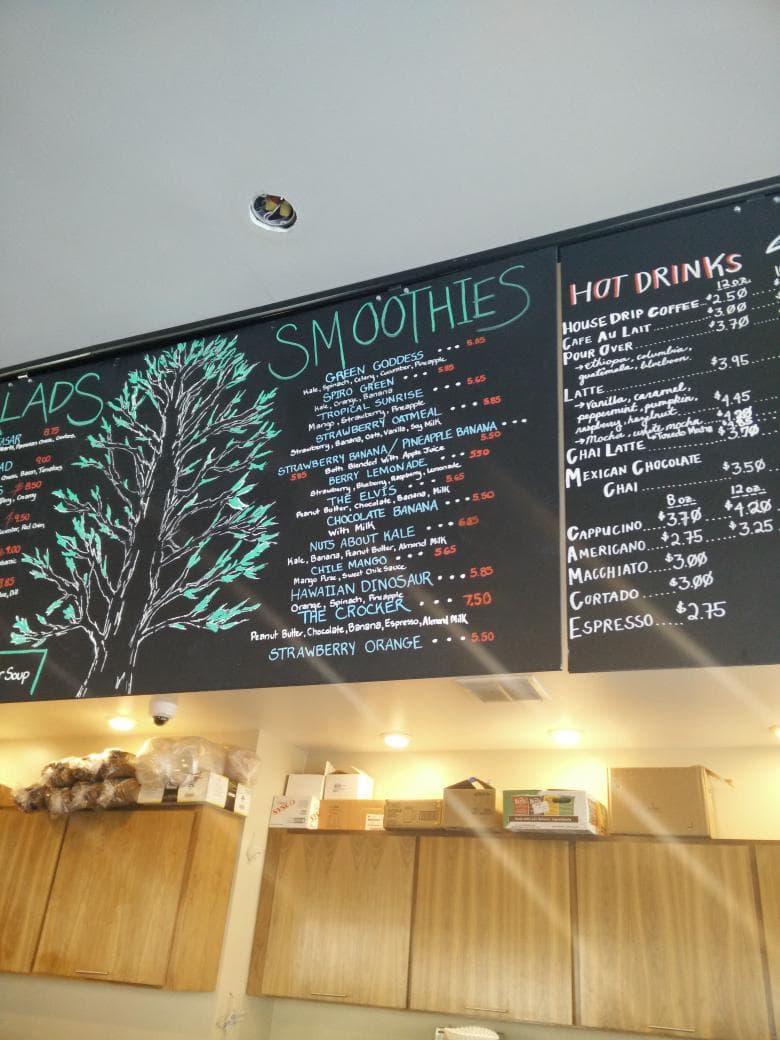 LADS
8.75
9.00
Onion, Bacon, Tomatoes
8.50
9.50
9.00
r Soup
SMOOTHIES
GREEN GODDESS ... 5.85
Kale, Spinach, Celery, Cucumber, Pineapple
SPIRO GREEN ... 5.85
Kale, Orange, Banana
TROPICAL SUNRISE ... 5.65
Mango, Strawberry, Pineapple
STRAWBERRY OATMEAL ... 5.85
Strawberry, Banana, Oats, Vanilla, Soy Milk
STRAWBERRY BANANA / PINEAPPLE BANANA ...
5.85 Both Blended With Apple Juice 5.50
BERRY LEMONADE ... 5.50
Strawberry, Blueberry, Raspberry, Lemonade
THE ELVIS ... 5.65
Peanut Butter, Chocolate, Banana, Milk
CHOCOLATE BANANA ... 5.50
With Milk
NUTS ABOUT KALE ... 6.85
Kale, Banana, Peanut Butter, Almond Milk
CHILE MANGO ... 5.65
Mango Puree, Sweet Chile Sauce
HAWAIIAN DINOSAUR ... 5.85
Orange, Spinach, Pineapple
THE CROCKER ... 7.50
Peanut Butter, Chocolate, Banana, Espresso, Almond Milk
STRAWBERRY ORANGE ... 5.50
HOT DRINKS
12oz.
HOUSE DRIP COFFEE $2.50
CAFE AU LAIT $3.00
POUR OVER $3.70
→ethiopa, columbia,
guatamala, blueboon.
LATTE $3.95
→Vanilla, caramel,
peppermint, pumpkin, $4.45
raspberry, hazelnut
→Mocha, white mocha
CHAI LATTE $3.70
MEXICAN CHOCOLATE
CHAI $3.50
8oz 12oz
CAPPUCINO $3.70 $4.20
AMERICANO $2.75 $3.25
MACCHIATO $3.00
CORTADO $3.00
ESPRESSO $2.75